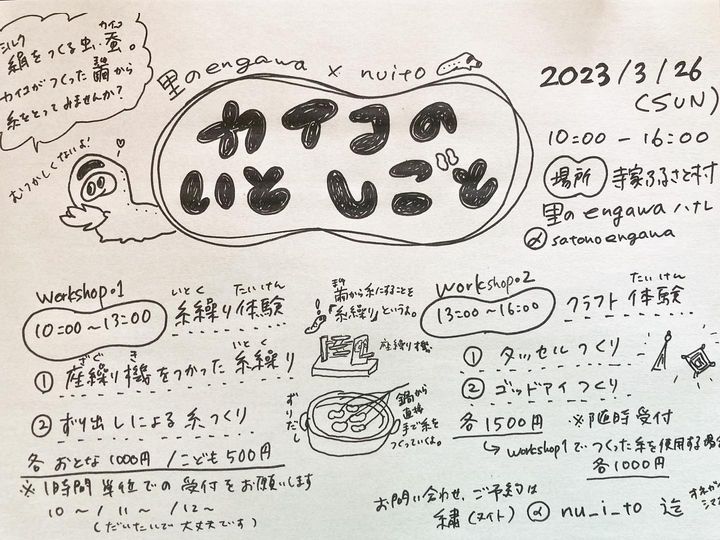 シルク
絹をつくる虫、蚕。
カイコ
カイコがつくった繭から
まゆ
糸をとってみませんか?
むつかしくないよ!
里のengawa × nuito
カイコの
いとしごと
2023/3/26
(SUN)
10:00 - 16:00
場所 寺家ふるさと村
里のengawaハナレ
@satonoengawa
workshop・1
10:00〜13:00
いとく たいけん
糸繰り体験
① 座繰り機をつかった糸繰り
ざぐ き いとく
② ずり出しによる糸つくり
各 おとな1000円 / こども500円
※1時間単位での受付をお願いします
10〜 / 11〜 / 12〜
(だいたいで大丈夫です)
まゆ
繭から糸にすることを
「糸繰り」というよ。
座繰り機
ずりだし
鍋から
直接
手で糸を
つくっていくよ。
workshop・2
13:00〜16:00
たいけん
クラフト体験
① タッセルつくり
② ゴッドアイつくり
各1500円 ※随時受付
workshop1でつくった糸を使用する場合
各1000円
お問い合わせ、ご予約は
繍(ヌイト) @nu_i_to 迄